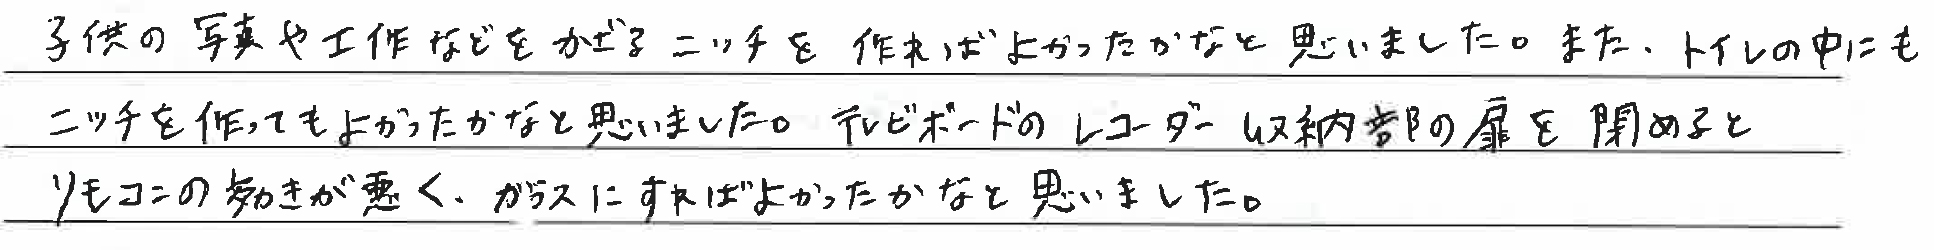 子供の写真や工作などをかざるニッチを作ればよかったかなと思いました。また、トイレの中にも
ニッチを作ってもよかったかなと思いました。テレビボードのレコーダー収納部の扉を閉めると
リモコンの効きが悪く、ガラスにすればよかったかなと思いました。